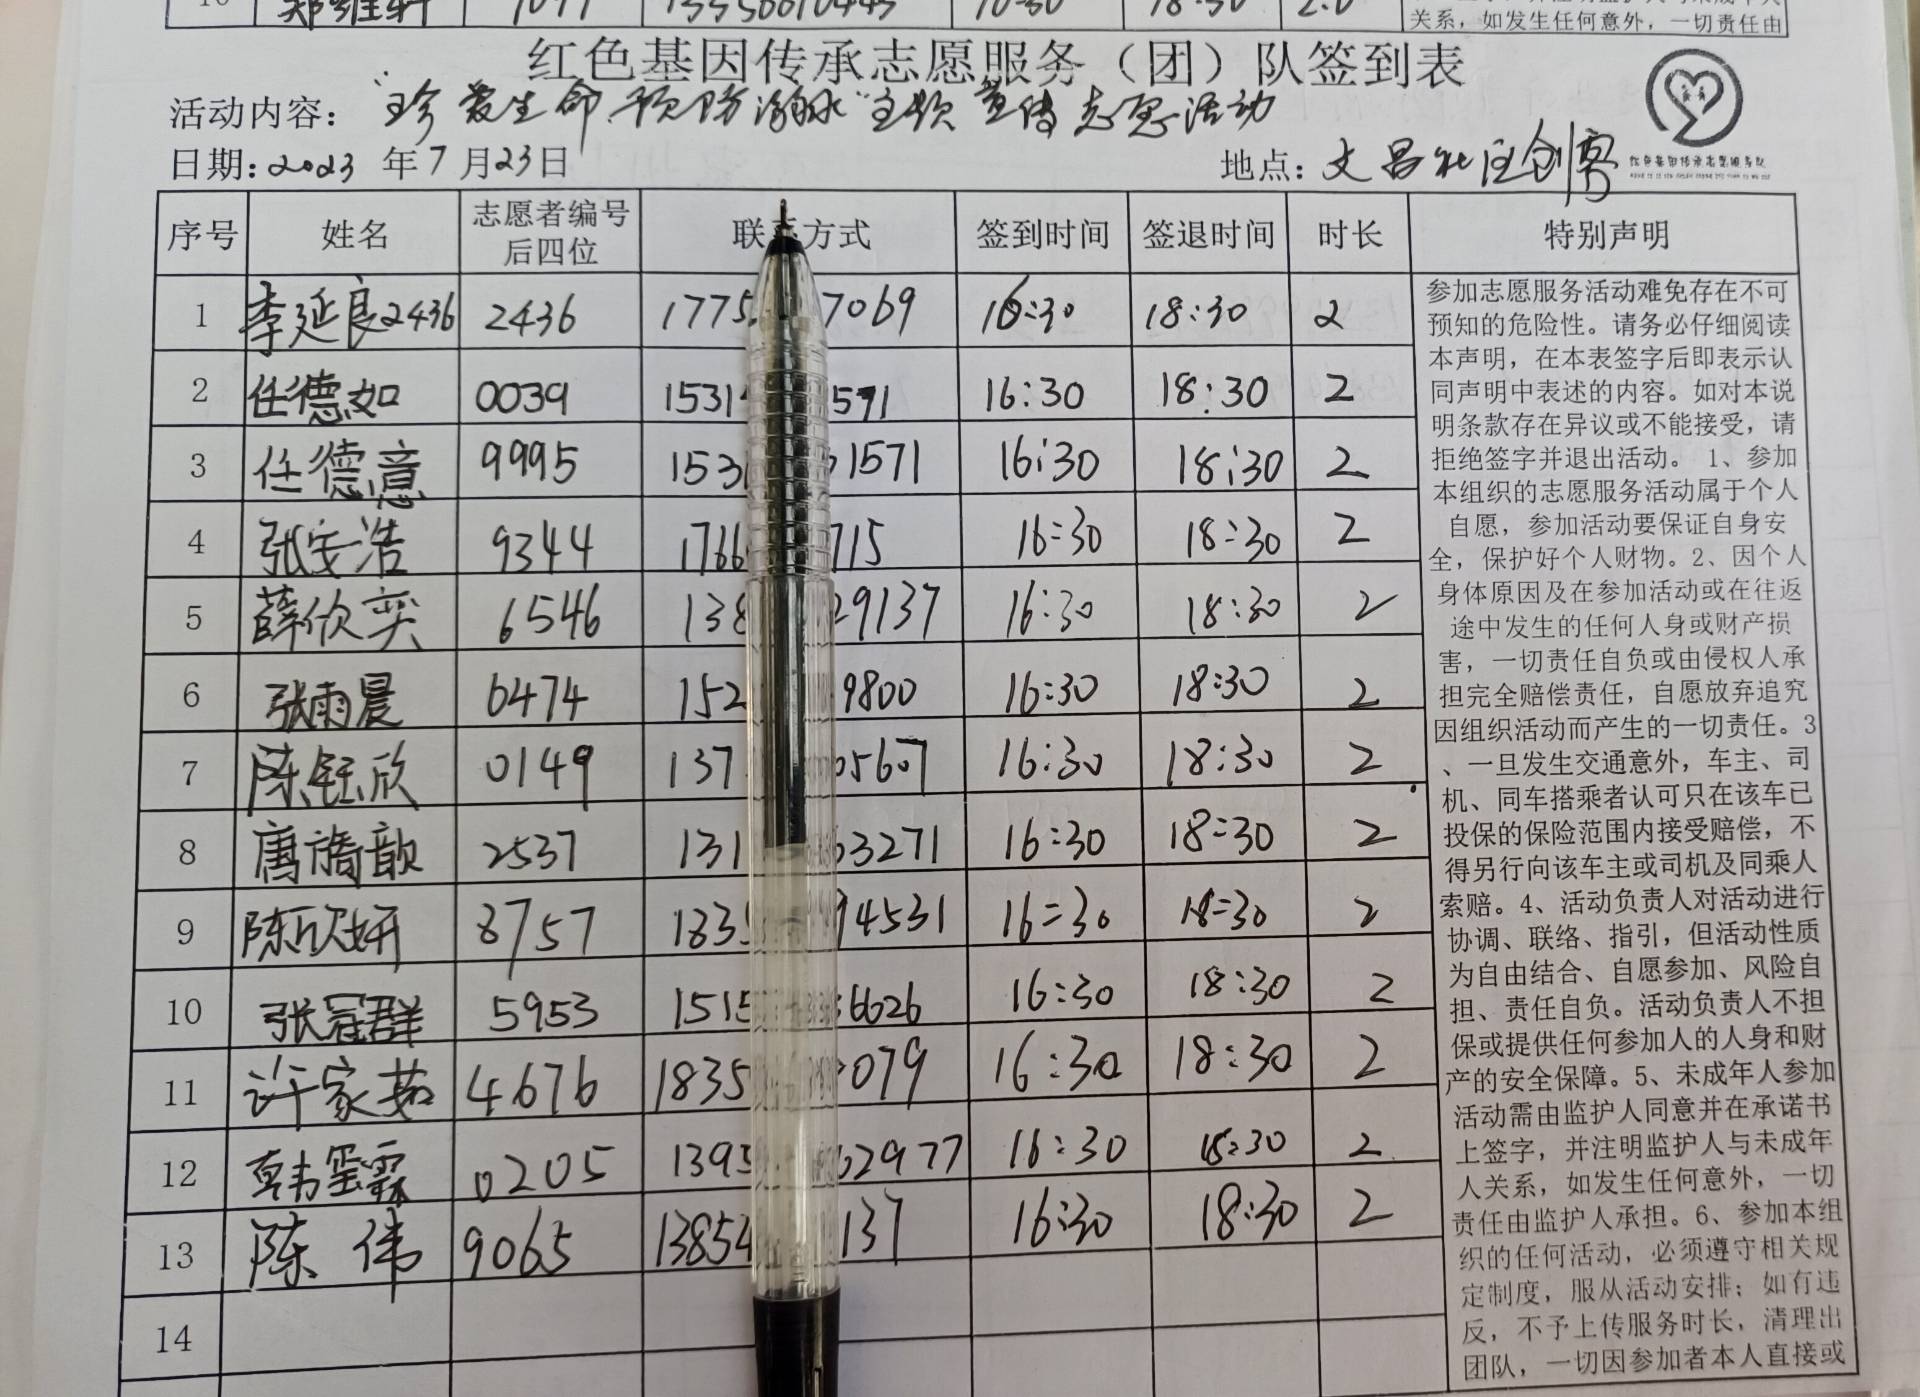 关系，如发生任何意外，一切责任由
红色基因传承志愿服务（团）队签到表
活动内容：“珍爱生命.预防溺水”主题宣传志愿活动
日期：2023 年7 月23日
地点：文昌社区创
序号 姓名 志愿者编号后四位 联 方式 签到时间 签退时间 时长 特别声明
1 李延良2436 2436 1775 7069 16:30 18:30 2
2 任德如 0039 1531 571 16:30 18:30 2
3 任德意 9995 153 1571 16:30 18:30 2
4 张安浩 9344 1766 715 16:30 18:30 2
5 薛欣奕 6546 138 29137 16:30 18:30 2
6 张雨晨 6474 152 9800 16:30 18:30 2
7 陈钰欣 0149 137 05607 16:30 18:30 2
8 唐 歆 2537 131 63271 16:30 18:30 2
9 陈欣妍 8757 183 94531 16:30 18:30 2
10 张冠群 5953 1515 36026 16:30 18:30 2
11 许家茹 4676 1835 079 16:30 18:30 2
12 韩 霖 0205 1395 62977 16:30 18:30 2
13 陈伟 9065 13854 137 16:30 18:30 2
14
参加志愿服务活动难免存在不可
预知的危险性。请务必仔细阅读
本声明，在本表签字后即表示认
同声明中表述的内容。如对本说
明条款存在异议或不能接受，请
拒绝签字并退出活动。1、参加
本组织的志愿服务活动属于个人
自愿，参加活动要保证自身安
全，保护好个人财物。2、因个人
身体原因及在参加活动或在往返
途中发生的任何人身或财产损
害，一切责任自负或由侵权人承
担完全赔偿责任，自愿放弃追究
因组织活动而产生的一切责任。3
、一旦发生交通意外，车主、司
机、同车搭乘者认可只在该车已
投保的保险范围内接受赔偿，不
得另行向该车主或司机及同乘人
索赔。4、活动负责人对活动进行
协调、联络、指引，但活动性质
为自由结合、自愿参加、风险自
担、责任自负。活动负责人不担
保或提供任何参加人的人身和财
产的安全保障。5、未成年人参加
活动需由监护人同意并在承诺书
上签字，并注明监护人与未成年
人关系，如发生任何意外，一切
责任由监护人承担。6、参加本组
织的任何活动，必须遵守相关规
定制度，服从活动安排；如有违
反，不予上传服务时长，清理出
团队，一切因参加者本人直接或